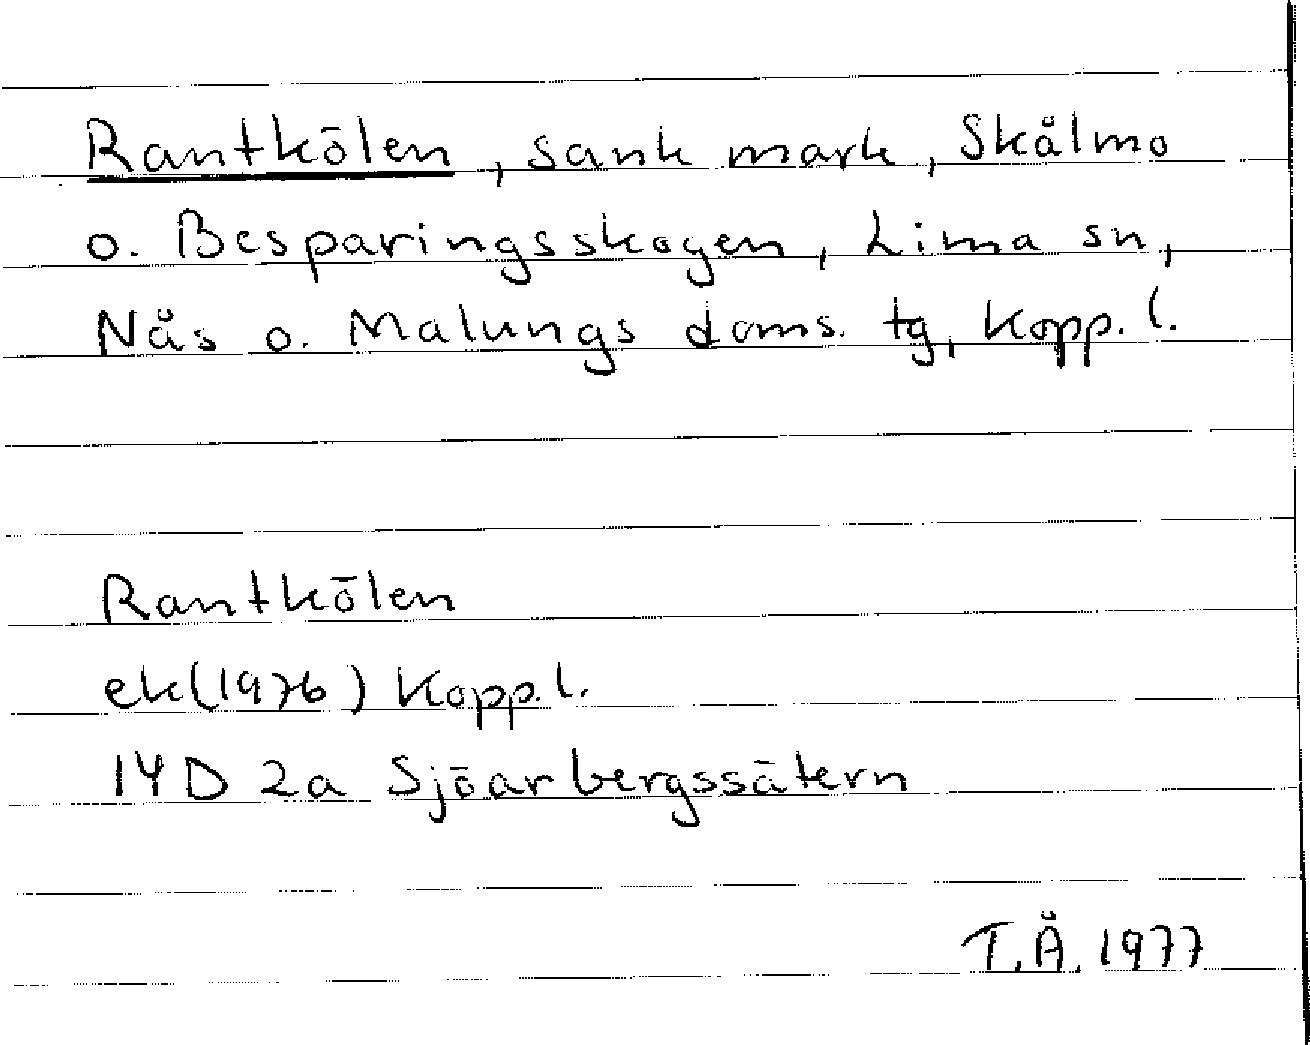 Rantkölen, sank mark, Skålmo
o. Besparingsskogen, Lima sn,
Nås o. Malungs doms. tg, Kopp. l.
Rantkölen
ek(1976) Kopp. l.
14D 2a Sjöarbergssätern
T.Å. 1977